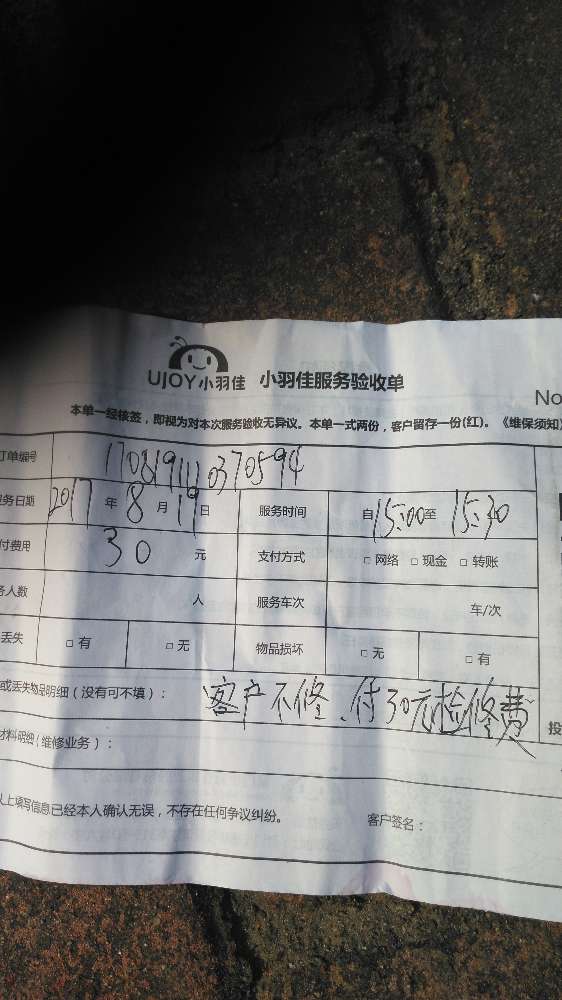 UJOY小羽佳 小羽佳服务验收单
No
本单一经核签，即视为对本次服务验收无异议。本单一式两份，客户留存一份(红)。《维保须知》
订单编号 1708191110370594
服务日期 2017 年 8 月 19 日 服务时间 自 15:00 至 15:30
付费用 30 元 支付方式 □ 网络 □ 现金 □ 转账
务人数 人 服务车次 车/次
丢失 □ 有 □ 无 物品损坏 □ 无 □ 有
或丢失物品明细（没有可不填）： 客户不修、付30元检修费
投
材料明细（维修业务）：
以上填写信息已经本人确认无误，不存在任何争议纠纷。 客户签名：